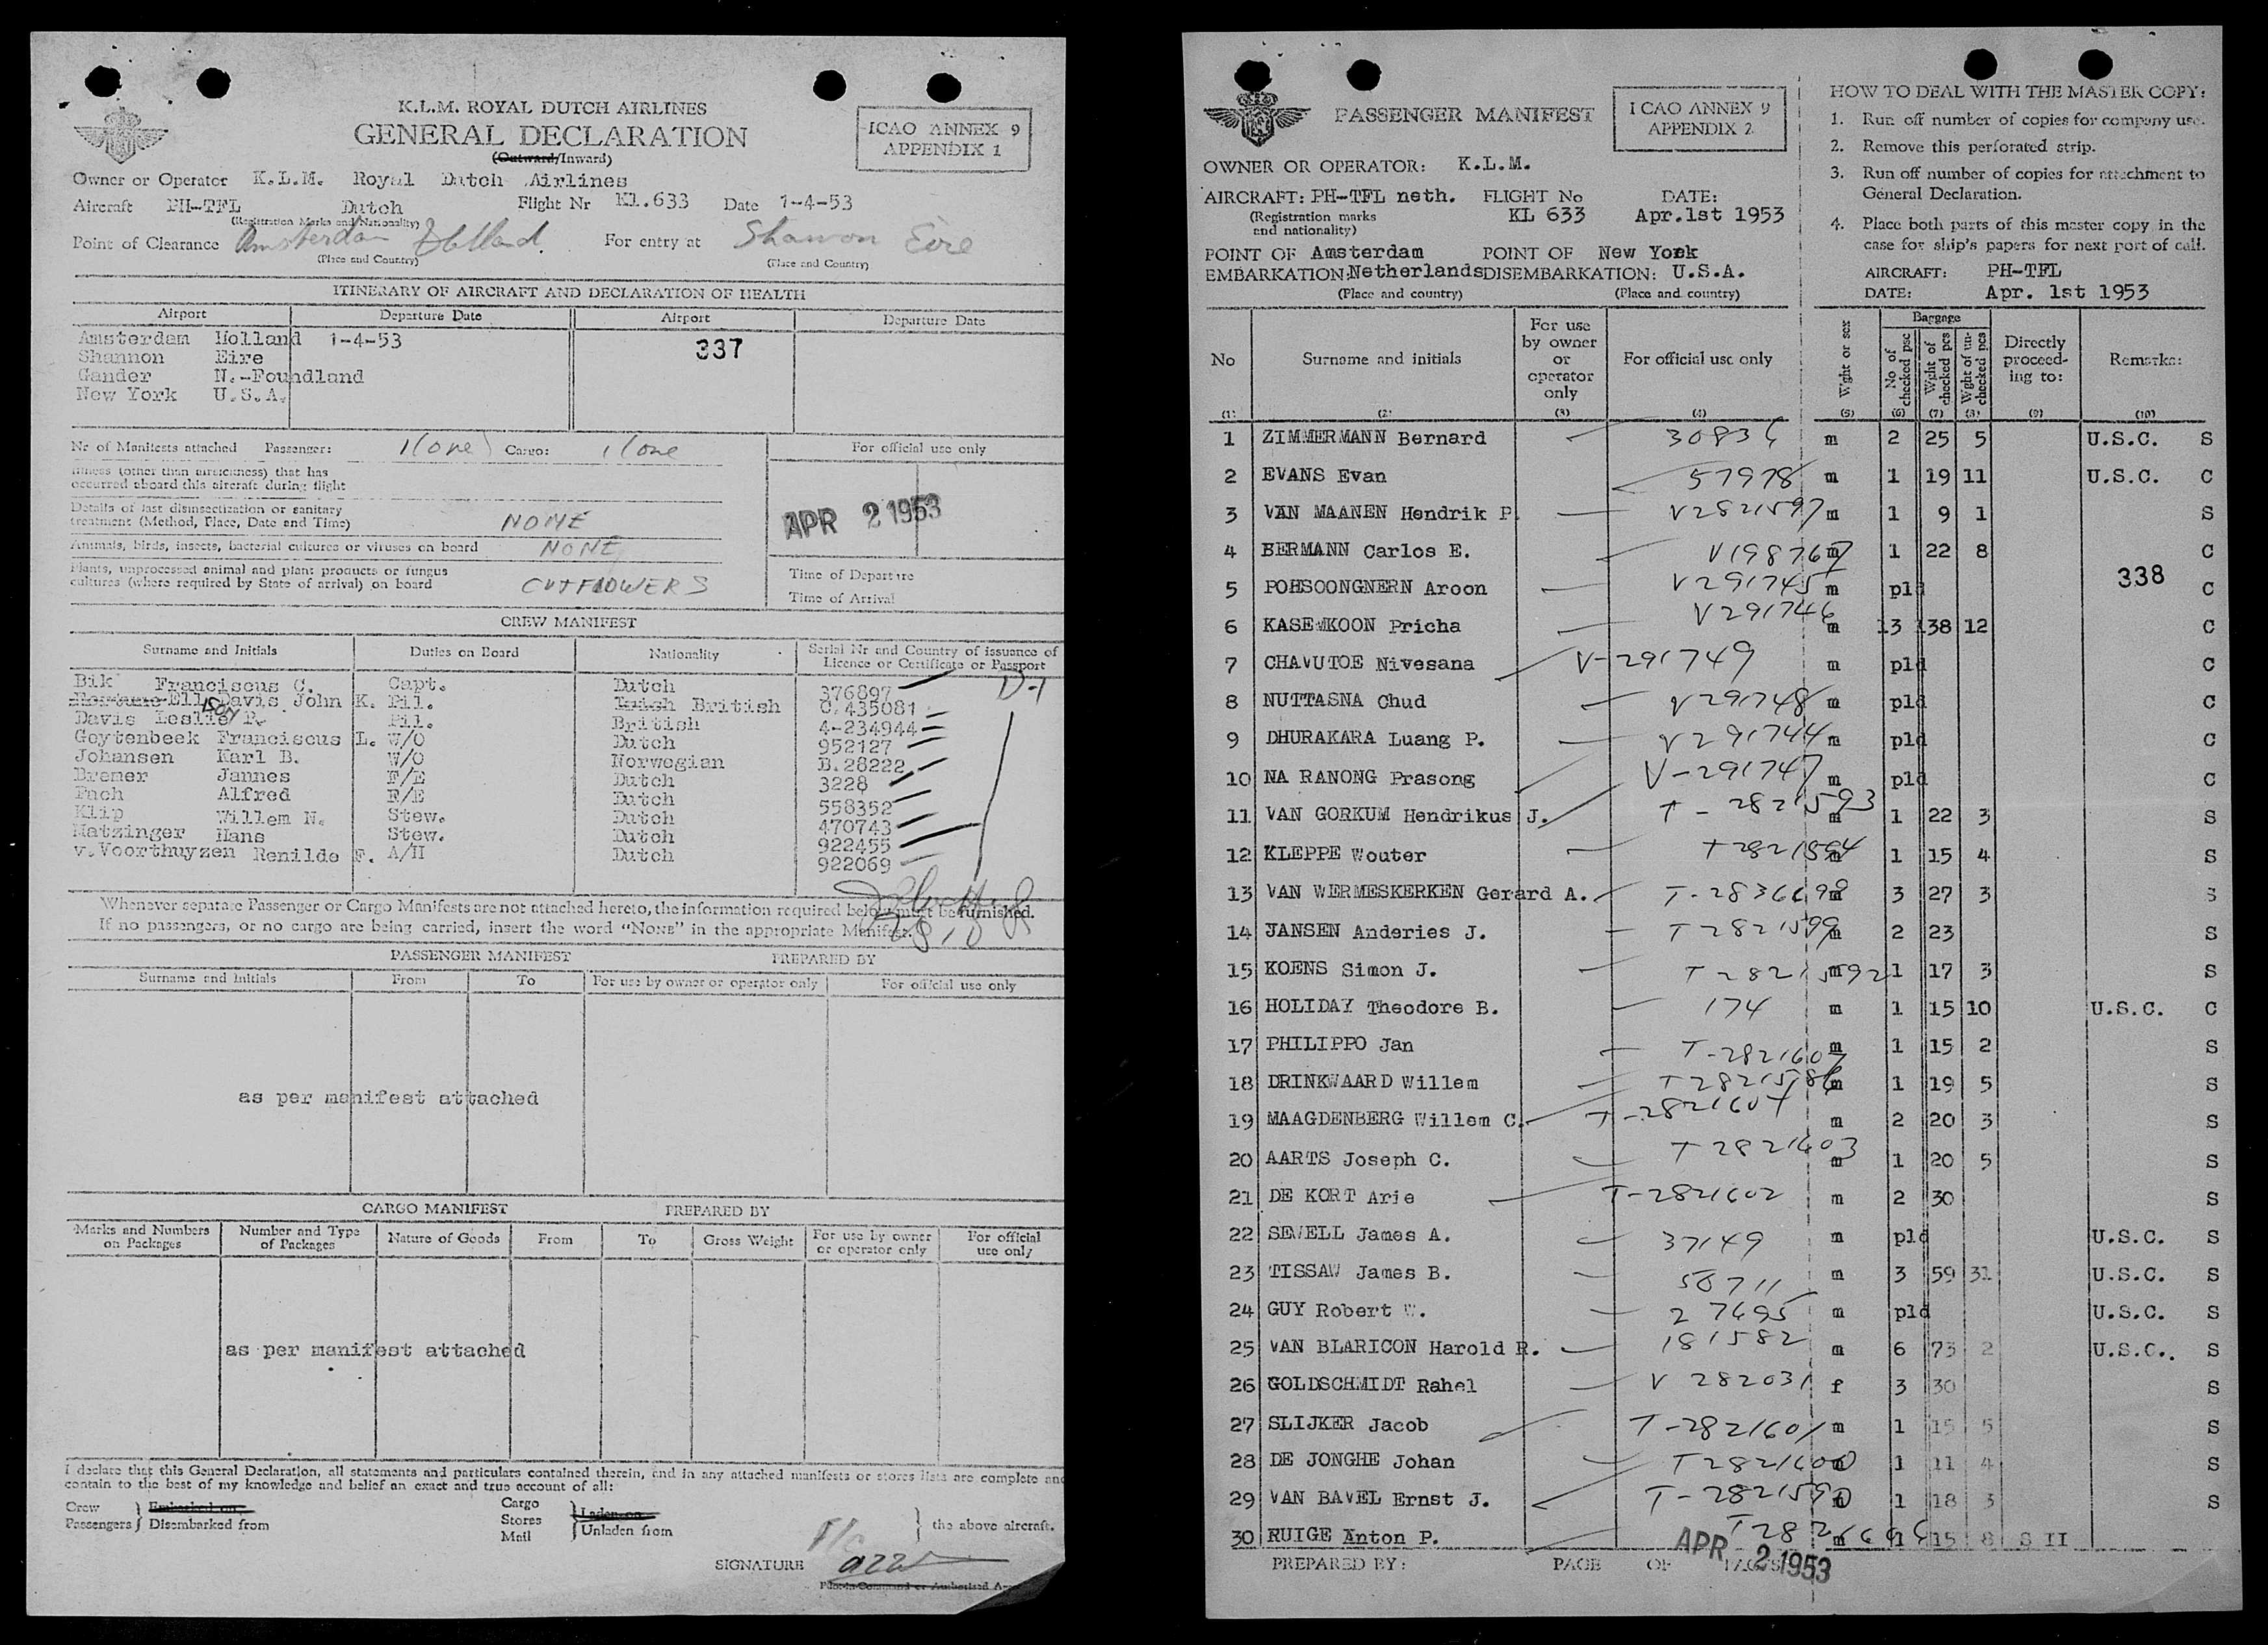 K.L.M. ROYAL DUTCH AIRLINES
GENERAL DECLARATION
(Outward/Inward)
ICAO ANNEX 9
APPENDIX 1
Owner or Operator K.L.M. Royal Dutch Airlines
Aircraft PH-TFL Dutch Flight Nr Kl.633 Date 1-4-53
(Registration Marks and Nationality)
Point of Clearance Amsterdam Holland For entry at Shannon Eire
(Place and Country) (Place and Country)
ITINERARY OF AIRCRAFT AND DECLARATION OF HEALTH
Airport Departure Date Airport Departure Date
Amsterdam Holland 1-4-53 337
Shannon Eire
Gander N.-Foundland
New York U.S.A.
Nr of Manifests attached Passenger: 1(one) Cargo: 1(one
For official use only
Illness (other than airsickness) that has
occurred aboard this aircraft during flight
Details of last disinsectization or sanitary
treatment (Method, Place, Date and Time) NONE
APR 2 1953
Animals, birds, insects, bacterial cultures or viruses on board NONE
Plants, unprocessed animal and plant products or fungus
cultures (where required by State of arrival) on board CUTFLOWERS
Time of Departure
Time of Arrival
CREW MANIFEST
Surname and Initials Duties on Board Nationality Serial Nr and Country of issuance of
Licence or Certificate or Passport
Bik Franciscus C. Capt. Dutch 376897 D-1
Davis John K. Pil. British 0.435081
Davis Leslie P. Pil. British 4-234944
Goytenbeek Franciscus L. W/O Dutch 952127
Johansen Karl B. W/O Norwegian B.28222
Bremer Jannes F/E Dutch 3228
Fach Alfred F/E Dutch 558352
Klip Willem N. Stew. Dutch 470743
Matzinger Hans Stew. Dutch 922455
v.Voorthuyzen Renilde F. A/H Dutch 922069
Whenever separate Passenger or Cargo Manifests are not attached hereto, the information required below must be furnished.
If no passengers, or no cargo are being carried, insert the word "NONE" in the appropriate Manifest.
PASSENGER MANIFEST PREPARED BY
Surname and Initials From To For use by owner or operator only For official use only
as per manifest attached
CARGO MANIFEST PREPARED BY
Marks and Numbers on Packages Number and Type of Packages Nature of Goods From To Gross Weight For use by owner or operator only For official use only
as per manifest attached
I declare that this General Declaration, all statements and particulars contained therein, and in any attached manifests or stores lists are complete and
contain to the best of my knowledge and belief an exact and true account of all:
Crew Embarked on
Passengers Disembarked from
Cargo
Stores
Mail
Laden on
Unladen from
the above aircraft.
SIGNATURE
PASSENGER MANIFEST
ICAO ANNEX 9
APPENDIX 2
OWNER OR OPERATOR: K.L.M.
AIRCRAFT: PH-TFL neth. FLIGHT No DATE:
(Registration marks KL 633 Apr.1st 1953
and nationality)
POINT OF Amsterdam POINT OF New York
EMBARKATION:Netherlands DISEMBARKATION: U.S.A.
(Place and country) (Place and country)
HOW TO DEAL WITH THE MASTER COPY:
1. Run off number of copies for company use.
2. Remove this perforated strip.
3. Run off number of copies for attachment to
General Declaration.
4. Place both parts of this master copy in the
case for ship's papers for next port of call.
AIRCRAFT: PH-TFL
DATE: Apr. 1st 1953
No Surname and initials For use by owner or operator only For official use only Wght or sex Baggage No of checked psc Wght of checked pcs Wght of un-checked pcs Directly proceed-ing to: Remarks:
(1) (2) (3) (4) (5) (6) (7) (8) (9) (10)
1 ZIMMERMANN Bernard 30836 m 2 25 5 U.S.C. S
2 EVANS Evan 57978 m 1 19 11 U.S.C. C
3 VAN MAANEN Hendrik P. V2821597 m 1 9 1 S
4 BERMANN Carlos E. V198767 m 1 22 8 C
5 POHSOONGNERN Aroon V291745 m pld 338 C
6 KASEMKOON Pricha V291746 m 13 138 12 C
7 CHAVUTOE Nivesana V-291749 m pld C
8 NUTTASNA Chud V291748 m pld C
9 DHURAKARA Luang P. V291744 m pld C
10 NA RANONG Prasong V-291747 m pld C
11 VAN GORKUM Hendrikus J. T-2821593 m 1 22 3 S
12 KLEPPE Wouter T2821594 m 1 15 4 S
13 VAN WERMESKERKEN Gerard A. T-2836698 m 3 27 3 S
14 JANSEN Anderies J. T2821599 m 2 23 S
15 KOENS Simon J. T2821592 m 1 17 3 S
16 HOLIDAY Theodore B. 174 m 1 15 10 U.S.C. C
17 PHILIPPO Jan T-2821607 m 1 15 2 S
18 DRINKWAARD Willem T2821586 m 1 19 5 S
19 MAAGDENBERG Willem C. T-2821604 m 2 20 3 S
20 AARTS Joseph C. T2821603 m 1 20 5 S
21 DE KORT Arie T-2821602 m 2 30 S
22 SEWELL James A. 37149 m pld U.S.C. S
23 TISSAW James B. 58711 m 3 59 31 U.S.C. S
24 GUY Robert W. 27695 m pld U.S.C. S
25 VAN BLARICON Harold R. 181582 m 6 73 2 U.S.C. S
26 GOLDSCHMIDT Rahel V 282031 f 3 30 S
27 SLIJKER Jacob T-2821601 m 1 15 5 S
28 DE JONGHE Johan T2821600 m 1 11 4 S
29 VAN BAVEL Ernst J. T-2821590 m 1 18 3 S
30 RUIGE Anton P. m 1 15 8 S II
PREPARED BY: PAGE OF PAGES
APR 2 1953